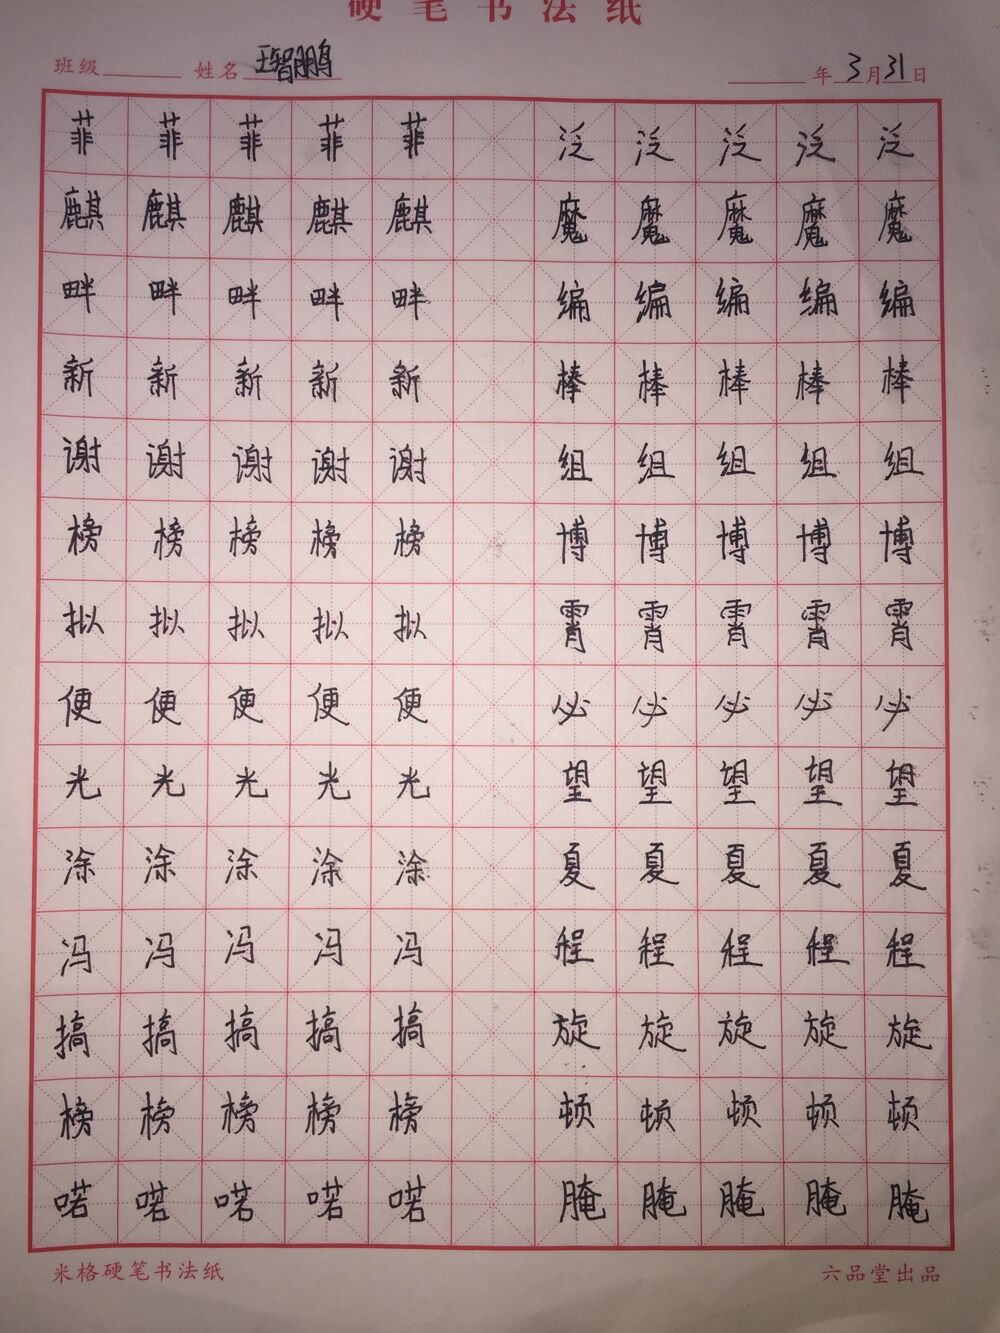 硬笔书法纸
班级 姓名 王智鹏 年 3 月 31 日
菲 菲 菲 菲 菲 泛 泛 泛 泛 泛
麒 麒 麒 麒 麒 魔 魔 魔 魔 魔
畔 畔 畔 畔 畔 编 编 编 编 编
新 新 新 新 新 棒 棒 棒 棒 棒
谢 谢 谢 谢 谢 组 组 组 组 组
榜 榜 榜 榜 榜 博 博 博 博 博
拟 拟 拟 拟 拟 霄 霄 霄 霄 霄
便 便 便 便 便 必 必 必 必 必
光 光 光 光 光 望 望 望 望 望
涂 涂 涂 涂 涂 夏 夏 夏 夏 夏
冯 冯 冯 冯 冯 程 程 程 程 程
搞 搞 搞 搞 搞 旋 旋 旋 旋 旋
榜 榜 榜 榜 榜 顿 顿 顿 顿 顿
喏 喏 喏 喏 喏 腌 腌 腌 腌 腌
米格硬笔书法纸 六品堂出品